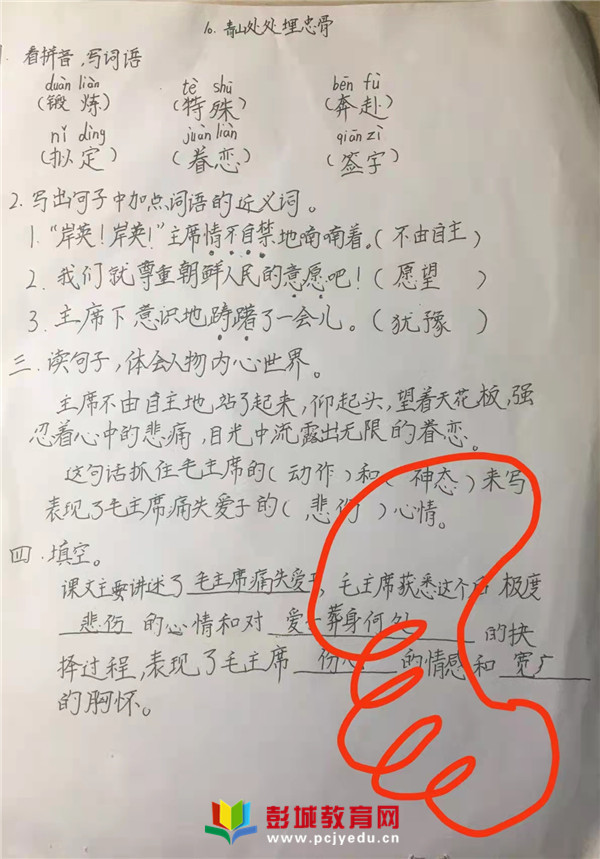 10. 青山处处埋忠骨
看拼音,写词语
duàn liàn tè shū bēn fù
(锻炼) (特殊) (奔赴)
nǐ dìng juàn liàn qiān zì
(拟定) (眷恋) (签字)
2.写出句子中加点词语的近义词。
1."岸英!岸英!"主席情不自禁地喃喃着。(不由自主)
2.我们就尊重朝鲜人民的意愿吧!(愿望)
3.主席下意识地踌躇了一会儿。(犹豫)
三.读句子,体会人物内心世界。
主席不由自主地站了起来,仰起头,望着天花板,强
忍着心中的悲痛,目光中流露出无限的眷恋。
这句话抓住毛主席的(动作)和(神态)来写
表现了毛主席痛失爱子的(悲伤)心情。
四.填空。
课文主要讲述了毛主席痛失爱子,毛主席获悉这个后极度
悲伤的心情和对爱葬身何处的抉
择过程,表现了毛主席的情感和宽广
的胸怀。
彭城教育网
www.pcjyedu.cn